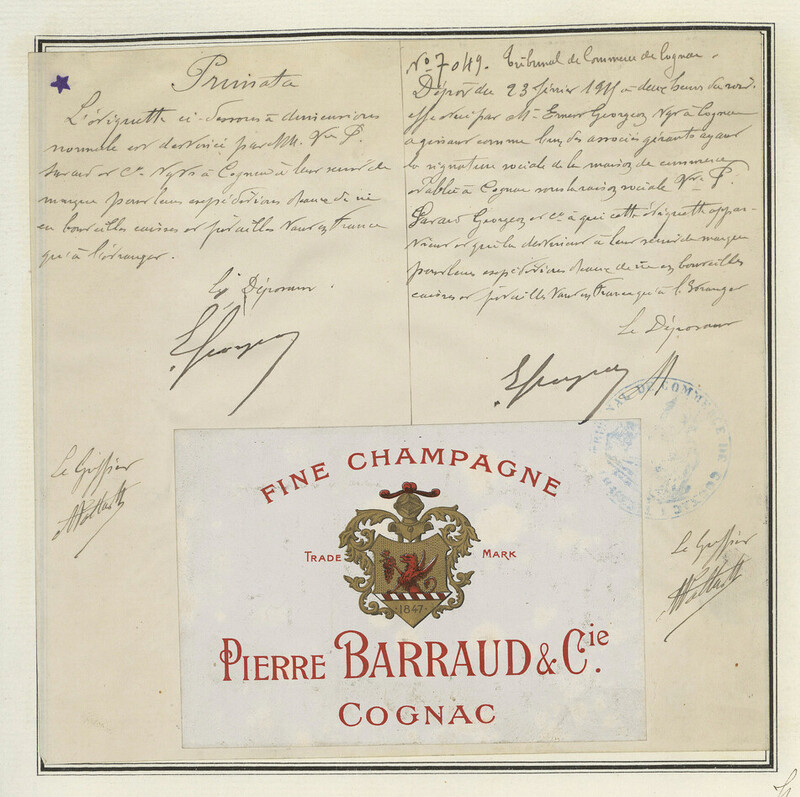 Primata
L'étiquette ci-dessous à dimensions
normale est destinée par MM. Vve P.
& Cie Ngts à Cognac à leur servir de
marque pour leurs expéditions d'eaux de vie
en bouteilles caisses et futailles tant en France
qu'à l'étranger.
Le Déposant
No 7049. Tribunal de Commerce de Cognac.
Dépôt du 23 février 1915 à deux heures du soir.
effectué par Mr Ernest Georgeon Ngt à Cognac
agissant comme l'un des associés gérants ayant
la signature sociale de la maison de commerce
établie à Cognac sous la raison sociale Vve P.
Georgeon et Cie à qui cette étiquette appar-
tient et qui la destinent à leur servir de marque
pour leurs expéditions d'eaux de vie en bouteilles
caisses et futailles tant en France qu'à l'étranger
Le Déposant
Le Greffier
Le Greffier
TRIBUNAL DE COMMERCE DE COGNAC
FINE CHAMPAGNE
TRADE MARK
1847
PIERRE BARRAUD & Cie.
COGNAC